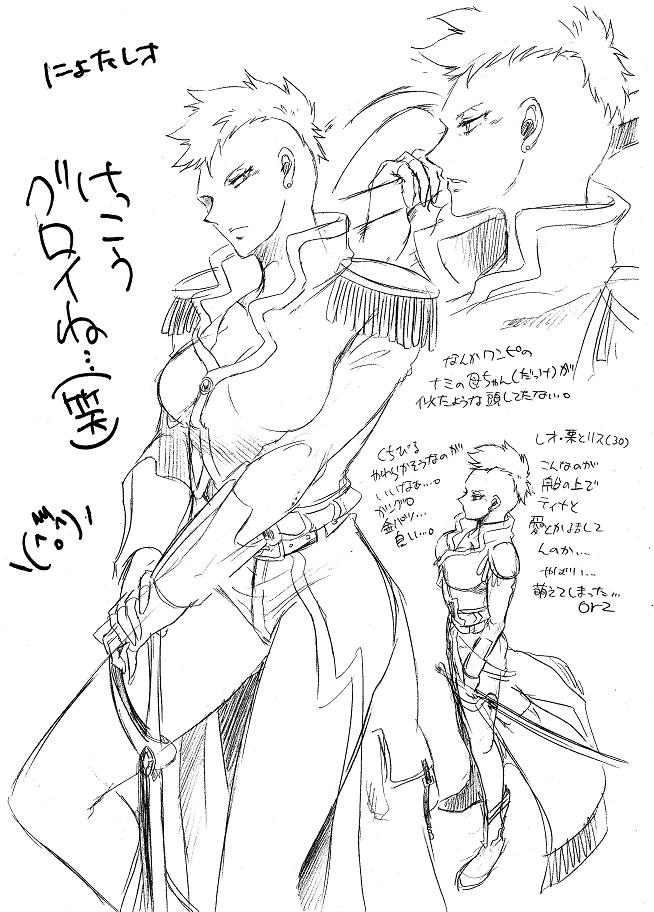 にょたレオ
けっこう
グロイね…(笑)
なんかワンピの
ナミの母ちゃん(だっけ)が
似たような頭してたない。
くちびる
やわらかそうなのが
いいけなぁ…。
ガングロ
金パツ…
白い…。
レオ・栗とリス(30)
こんなのが
船の上で
ティナと
愛とか話して
んのか…
やばい…
萌えてしまった…
orz